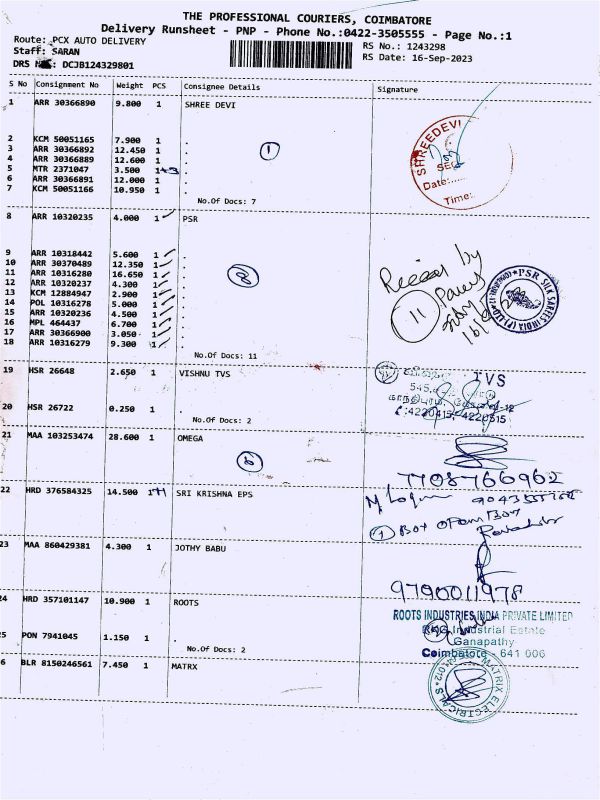 THE PROFESSIONAL COURIERS, COIMBATORE
Delivery Runsheet - PNP - Phone No.:0422-3505555 - Page No.:1
Route: PCX AUTO DELIVERY
RS No.: 1243298
Staff: SARAN
RS Date: 16-Sep-2023
DRS DCJB124329801
S No Consignment No Weight PCS Consignee Details Signature
1 ARR 30366890 9.800 1 SHREE DEVI
SHREEDEVI
2 KCM 50051165 7.900 1 .
3 ARR 30366892 12.450 1 . 1
4 ARR 30366889 12.600 1 .
5 MTR 2371047 3.500 1 .
6 ARR 30366891 12.000 1 . Date:
7 KCM 50051166 10.950 1 . Time:
No.Of Docs: 7
8 ARR 10320235 4.000 1 PSR
9 ARR 10318442 5.600 1 .
10 ARR 30370489 12.350 1 . by
11 ARR 10316280 16.650 1 . PSR SILK SAREES INDIA (P) LTD
12 ARR 10320237 4.300 1 .
13 KCM 12884947 2.900 1 .
14 POL 10316278 5.000 1 . 11
15 ARR 10320236 4.500 1 .
16 MPL 464437 6.700 1 .
17 ARR 30366900 3.050 1 .
18 ARR 10316279 9.300 1 .
No.Of Docs: 11
19 HSR 26648 2.650 1 VISHNU TVS
TVS
545,
20 HSR 26722 0.250 1 .
No.Of Docs: 2
:4220415, 4220515
21 MAA 103253474 28.600 1 OMEGA
7708766962
22 HRD 376584325 14.500 SRI KRISHNA EPS
1 Box
23 MAA 860429381 4.300 1 JOTHY BABU
9790011978
24 HRD 357101147 10.900 1 ROOTS
ROOTS INDUSTRIES INDIA PRIVATE LIMITED
Industrial Estate
25 PON 7941045 1.150 1 .
Ganapathy
No.Of Docs: 2
Coimbatore - 641 006
26 BLR 8150246561 7.450 1 MATRX
MATRIX ELECTRICALS